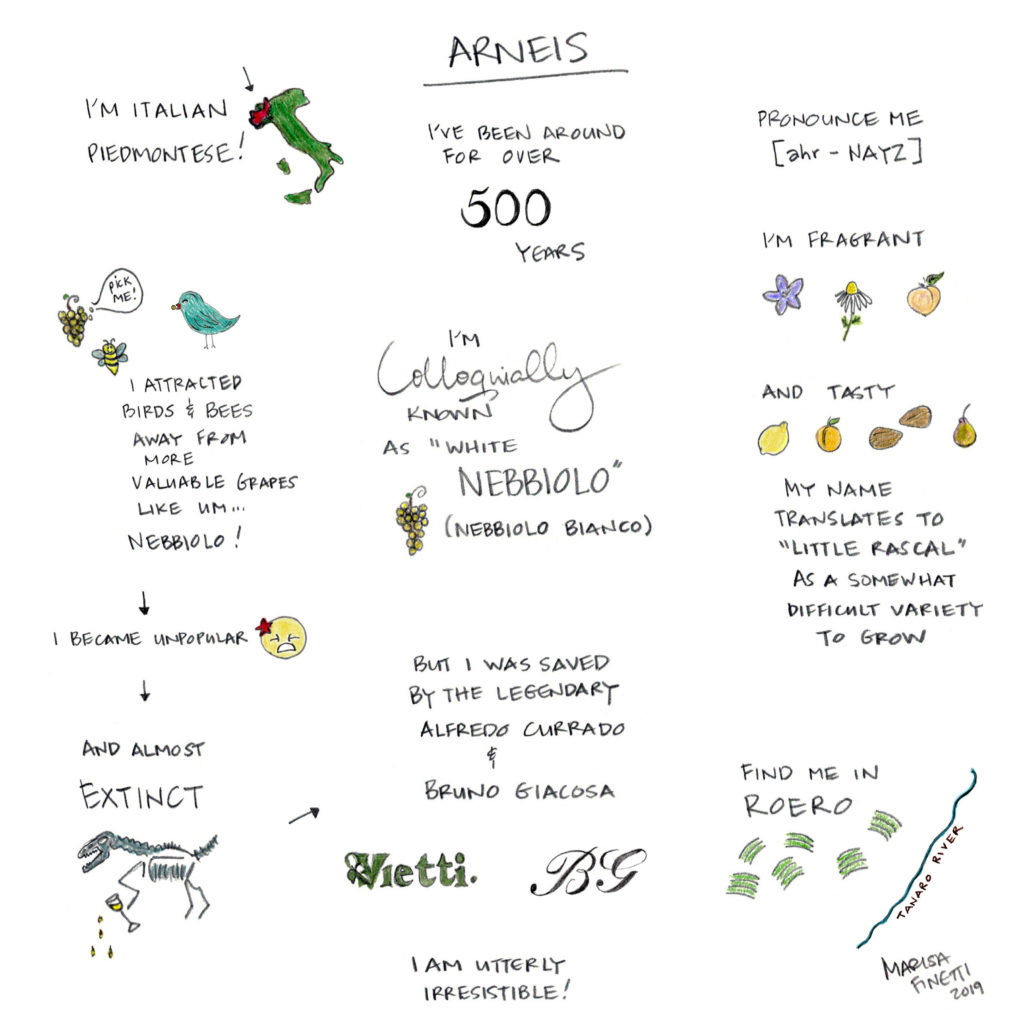 ARNEIS
I'M ITALIAN
PIEDMONTESE!
I'VE BEEN AROUND
FOR OVER
500
YEARS
PRONOUNCE ME
[ahr - NAYZ]
I'M FRAGRANT
PICK
ME!
I ATTRACTED
BIRDS & BEES
AWAY FROM
MORE
VALUABLE GRAPES
LIKE UM...
NEBBIOLO!
I'M
Colloquially
KNOWN
AS "WHITE
NEBBIOLO"
(NEBBIOLO BIANCO)
AND TASTY
MY NAME
TRANSLATES TO
"LITTLE RASCAL"
AS A SOMEWHAT
DIFFICULT VARIETY
TO GROW
I BECAME UNPOPULAR
AND ALMOST
EXTINCT
BUT I WAS SAVED
BY THE LEGENDARY
ALFREDO CURRADO
&
BRUNO GIACOSA
Vietti.
BG
I AM UTTERLY
IRRESISTIBLE!
FIND ME IN
ROERO
TANARO RIVER
MARISA
FINETTI
2019